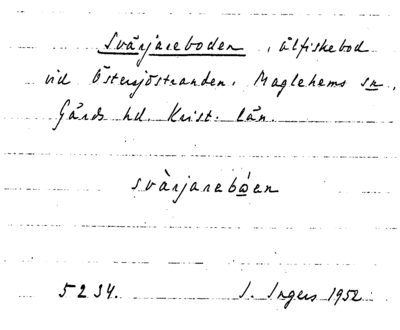 Svärjareboden, ålfiskebod
vid Östersjöstranden. Maglehems sn,
Gärds hd. Krist. län.
svärjarebǫ́en
5234. I. Ingers 1952